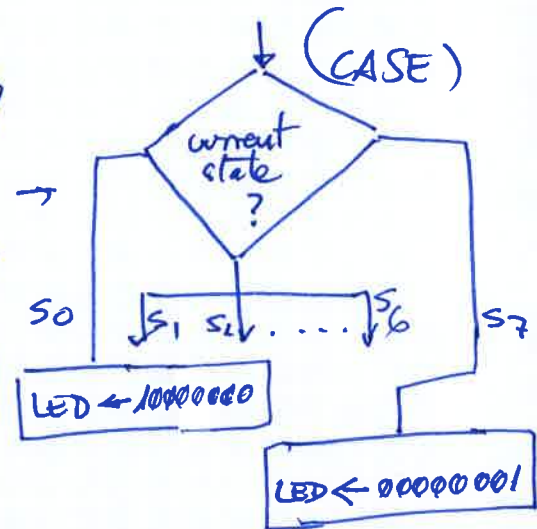 (CASE)
current
state
?
S0
S1 S2 .... S6
S7
LED ← 10000000
LED ← 00000001